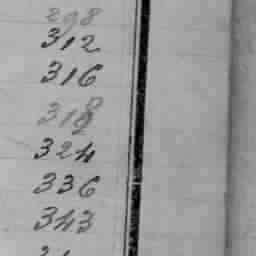 298
312
316
318
324
336
343